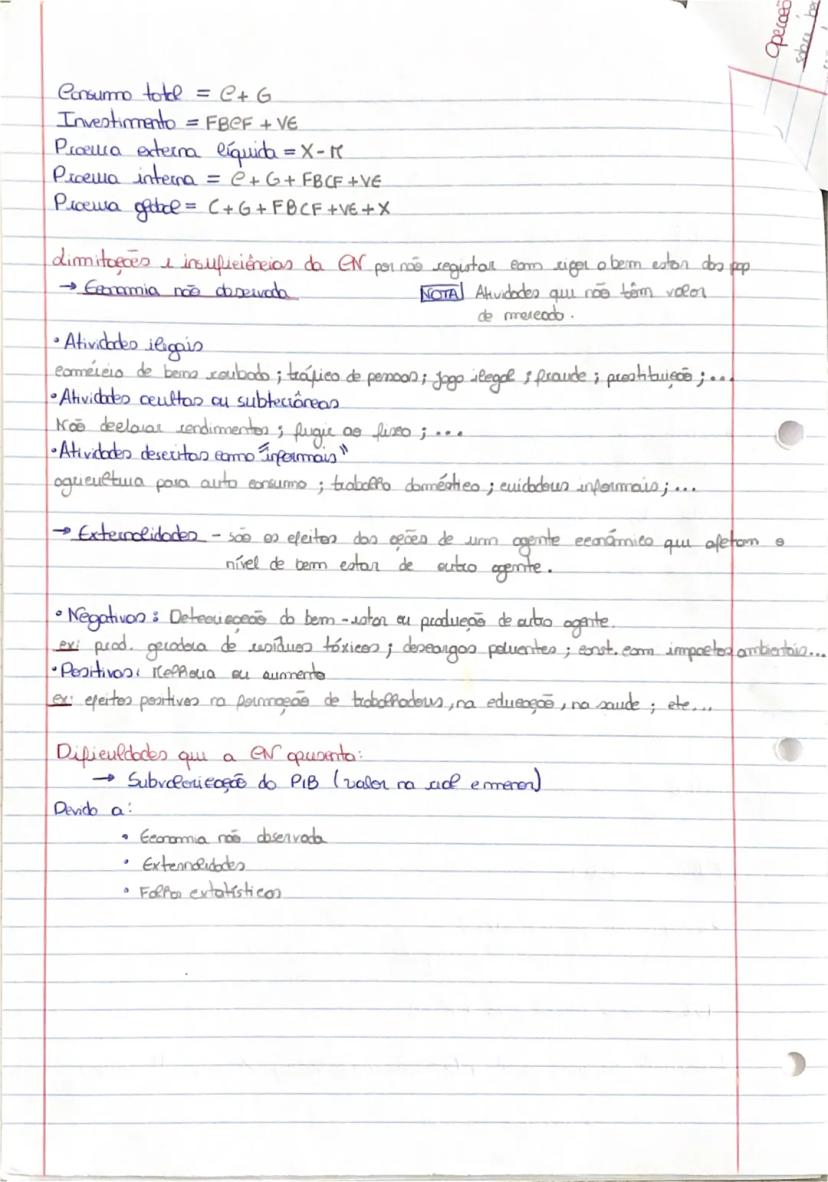 Operaçõ
sobre be
Consumo total = C+ G
Investimento = FBCF + VE
Procura externa líquida = X - M
Procura interna = C + G + FBCF + VE
Procura global = C + G + FBCF + VE + X
Limitações e insuficiências da CN por não registar com rigor o bem estar das pop
→ Economia não observada
NOTA Atividades que não têm valor
de mercado.
• Atividades ilegais
comércio de bens roubado ; tráfico de pessoas ; jogo ilegal ; fraude ; prostituição ; ...
• Atividades ocultas ou subterrâneas
Não declarar rendimentos ; fugir ao fisco ; ...
• Atividades descritas como "informais"
agricultura para auto consumo ; trabalho doméstico ; cuidadores informais ; ...
→ Externalidades - são os efeitos das ações de um agente económico que afetam o
nível de bem estar de outro agente.
• Negativas : Deterioração do bem-estar ou produção de outro agente.
ex: prod. geradora de resíduos tóxicos ; descargas poluentes ; const. com impactos ambientais...
• Positivas : Melhoria ou aumento
ex: efeitos positivos na formação de trabalhadores, na educação, na saude ; etc...
Dificuldades que a CN apresenta:
→ Subvalorização do PIB (valor na real e menor)
Devido a:
• Economia não observada
• Externalidades
• Falhas estatísticas